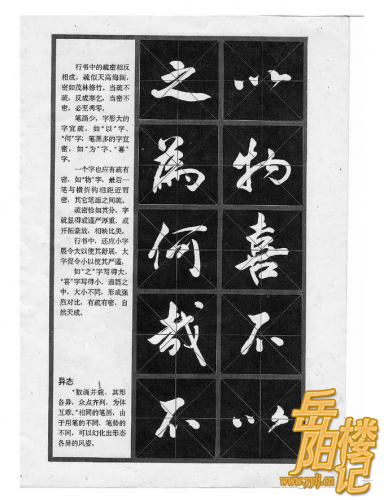 行书中的疏密相反
相成，疏似天高海阔，
密如茂林修竹。当疏不
疏，反成寒乞，当密不
密，必至凋零。
笔画少，字形大的
字宜疏，如“以”字、
“何”字；笔画多的字宜
密，如“为”字、“喜”
字。
一个字也应有疏有
密，如“物”字，最后一
笔与横折钩相距近而
密，其它笔画之间疏。
疏密恰如其分，字
就显得或谨严厚重，或
开拓豪放，相映比美。
行书中，还应小字
展令大以使其舒展，大
字促令小以使其严谨。
如“之”字写得大，
“喜”字写得小，通篇之
中，大小不同，形成强
烈对比，有疏有密，自
然天成。
异态
“数画并施，其形
各异，众点齐列，为体
互乖。”相同的笔画，由
于用笔的不同、笔势的
不同，可以幻化出形态
各异的风姿。
以物喜不以
之为何哉不
岳阳楼记
www.yylj.cn